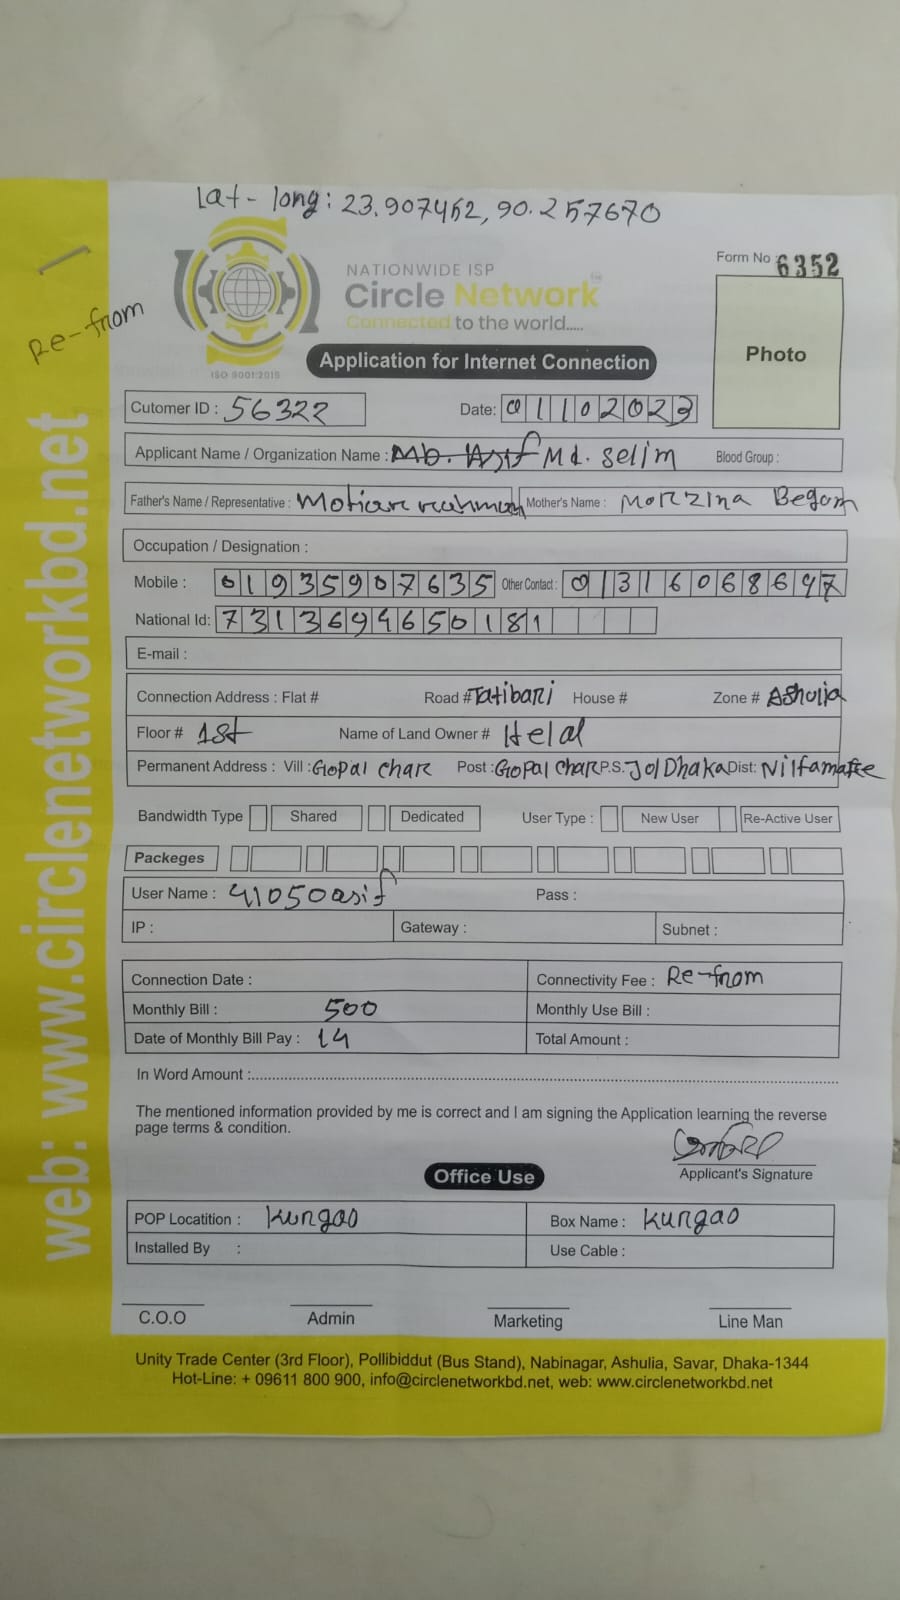 Lat - long: 23.907452, 90.257670
Re-from
NATIONWIDE ISP
Circle Network
Connected to the world.....
ISO 9001:2015
Form No : 6352
Photo
Application for Internet Connection
Cutomer ID : 56322 Date: 01102023
Applicant Name / Organization Name : Md. Selim Blood Group :
Father's Name / Representative : Motiar rahman Mother's Name : Morzina Begom
Occupation / Designation :
Mobile : 01935907635 Other Contact : 01316068697
National Id: 7313694650181
E-mail :
Connection Address : Flat # Road # Tatibari House # Zone # Ashulia
Floor # 1st Name of Land Owner # Helal
Permanent Address : Vill : Gopal Char Post : Gopal Char P.S. Jol Dhaka Dist: Nilfamare
Bandwidth Type Shared Dedicated User Type : New User Re-Active User
Packeges
User Name : 41050asif Pass :
IP : Gateway : Subnet :
Connection Date : Connectivity Fee : Re-from
Monthly Bill : 500 Monthly Use Bill :
Date of Monthly Bill Pay : 14 Total Amount :
In Word Amount :
The mentioned information provided by me is correct and I am signing the Application learning the reverse
page terms & condition.
Applicant's Signature
Office Use
POP Locatition : Kungao Box Name : Kungao
Installed By : Use Cable :
C.O.O Admin Marketing Line Man
Unity Trade Center (3rd Floor), Pollibiddut (Bus Stand), Nabinagar, Ashulia, Savar, Dhaka-1344
Hot-Line: + 09611 800 900, info@circlenetworkbd.net, web: www.circlenetworkbd.net
web: www.circlenetworkbd.net